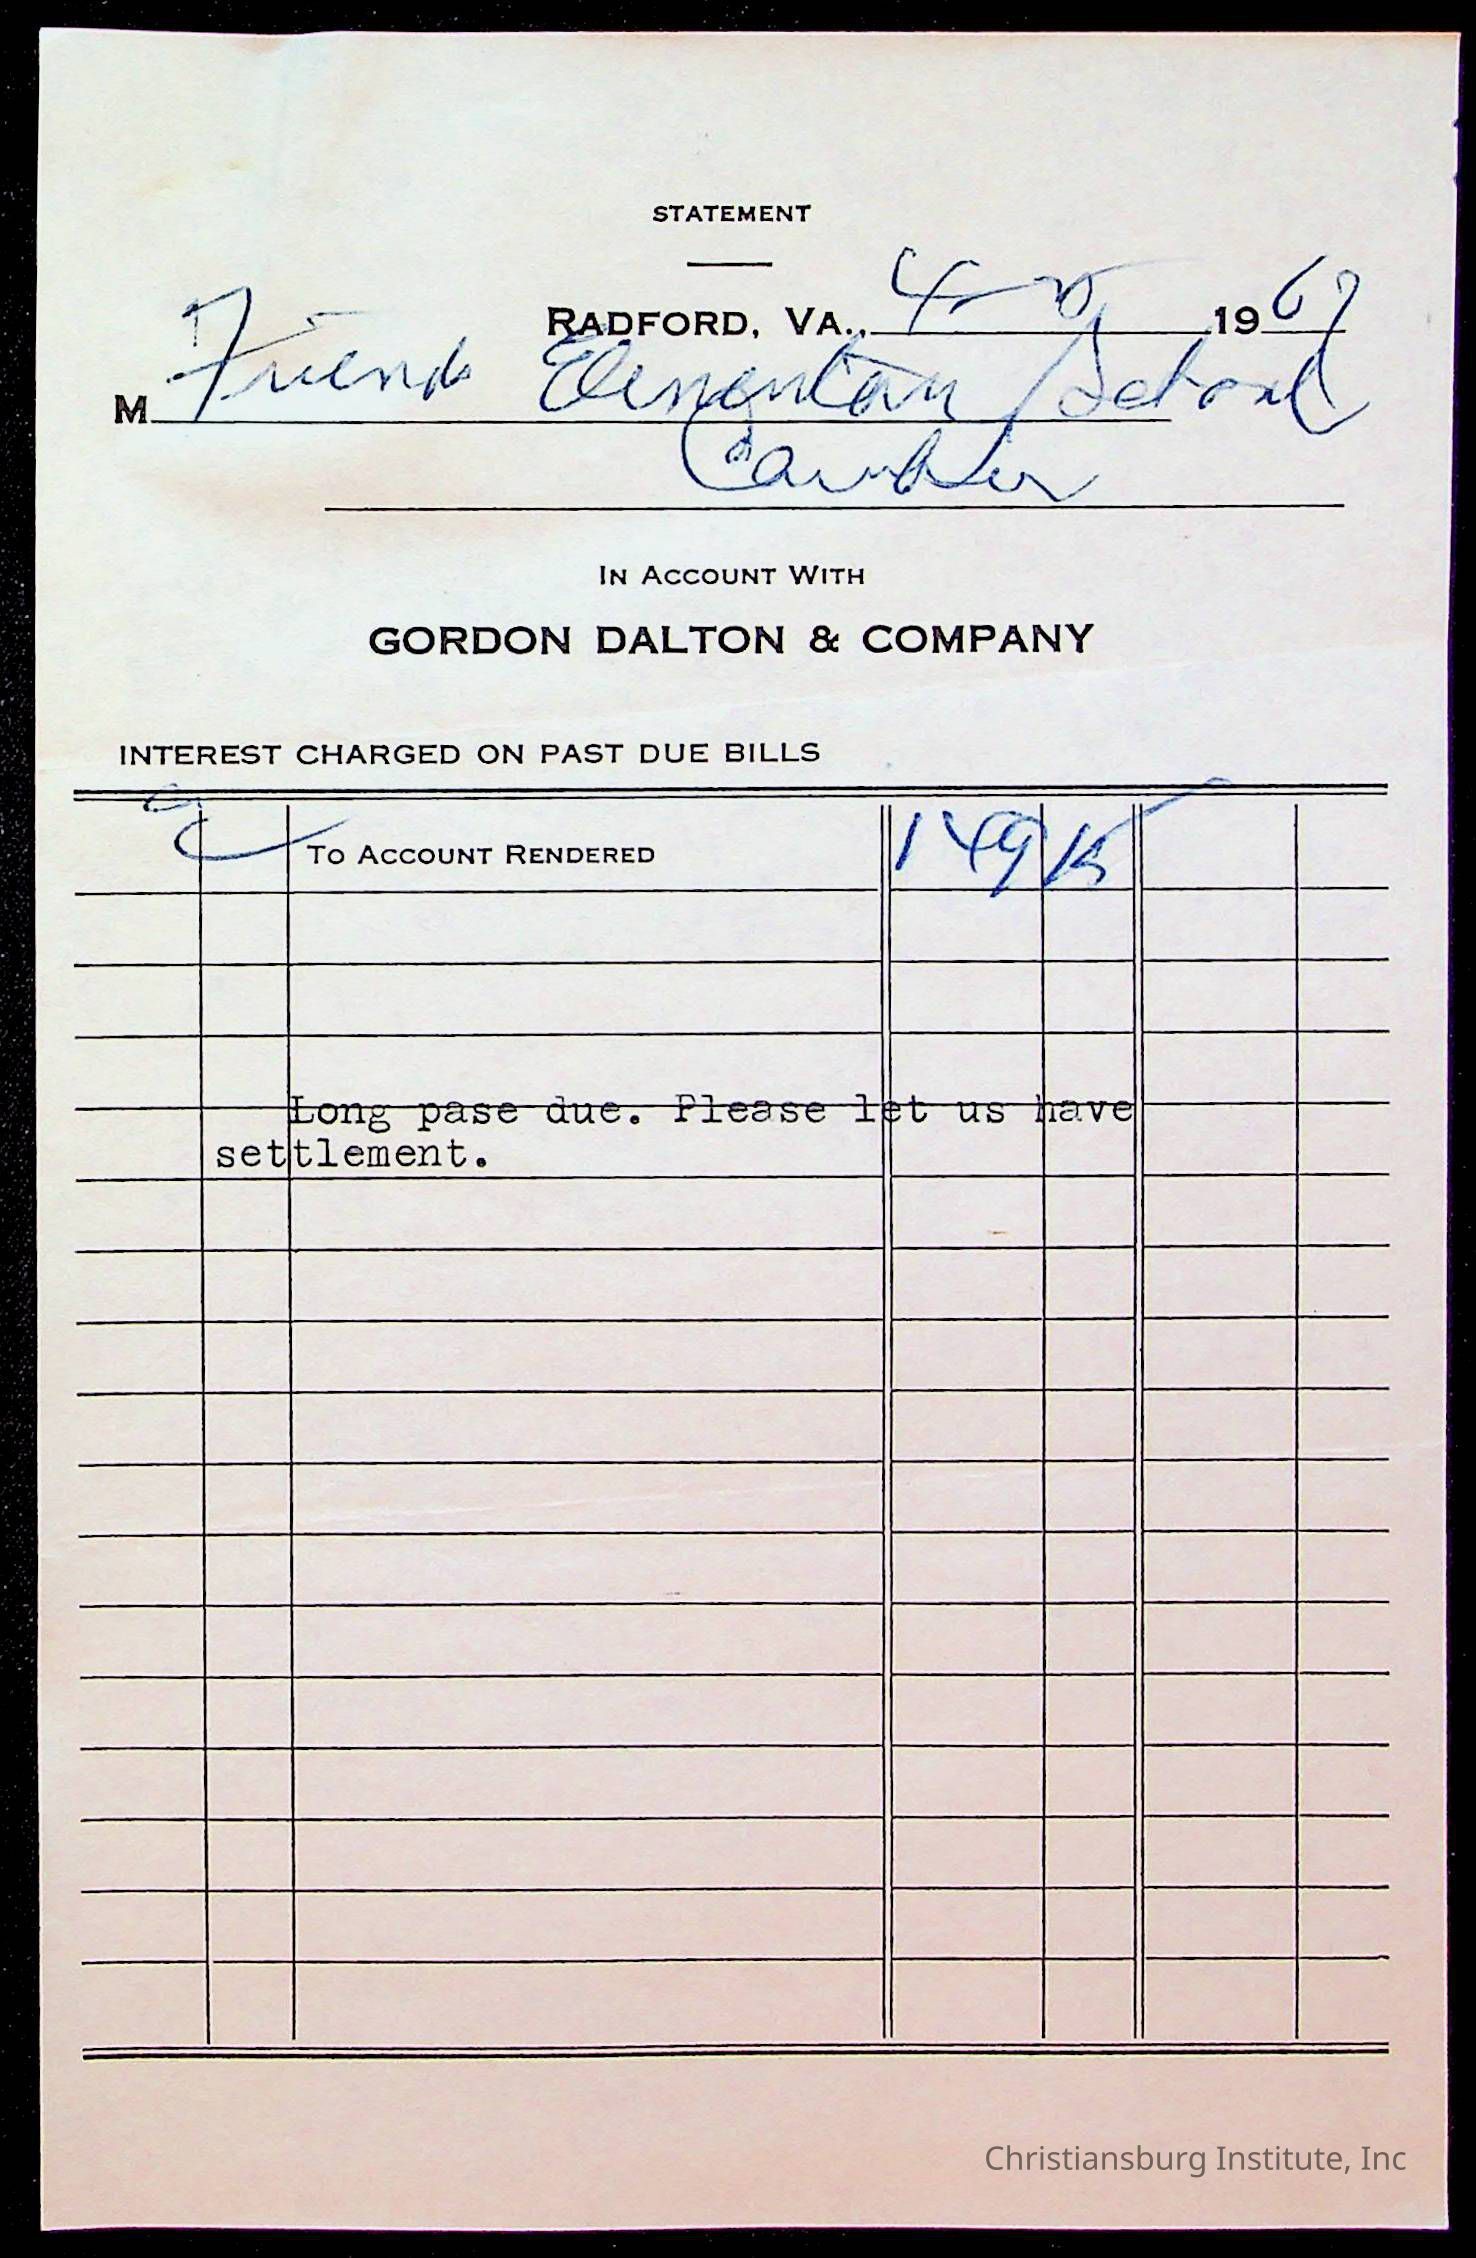 STATEMENT
RADFORD, VA., 4- 1967
M Friends Elementary School
Cambria
IN ACCOUNT WITH
GORDON DALTON & COMPANY
INTEREST CHARGED ON PAST DUE BILLS
TO ACCOUNT RENDERED 149 15
Long pase due. Please let us have
settlement.
Christiansburg Institute, Inc